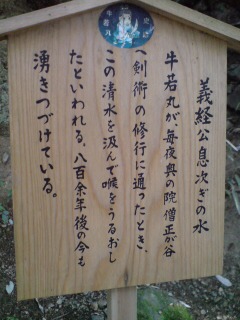 義経公息次ぎの水
牛若丸が、毎夜奥の院僧正が谷
へ剣術の修行に通ったとき、
この清水を汲んで喉をうるおし
たといわれる。八百余年後の今も
湧きつづけている。